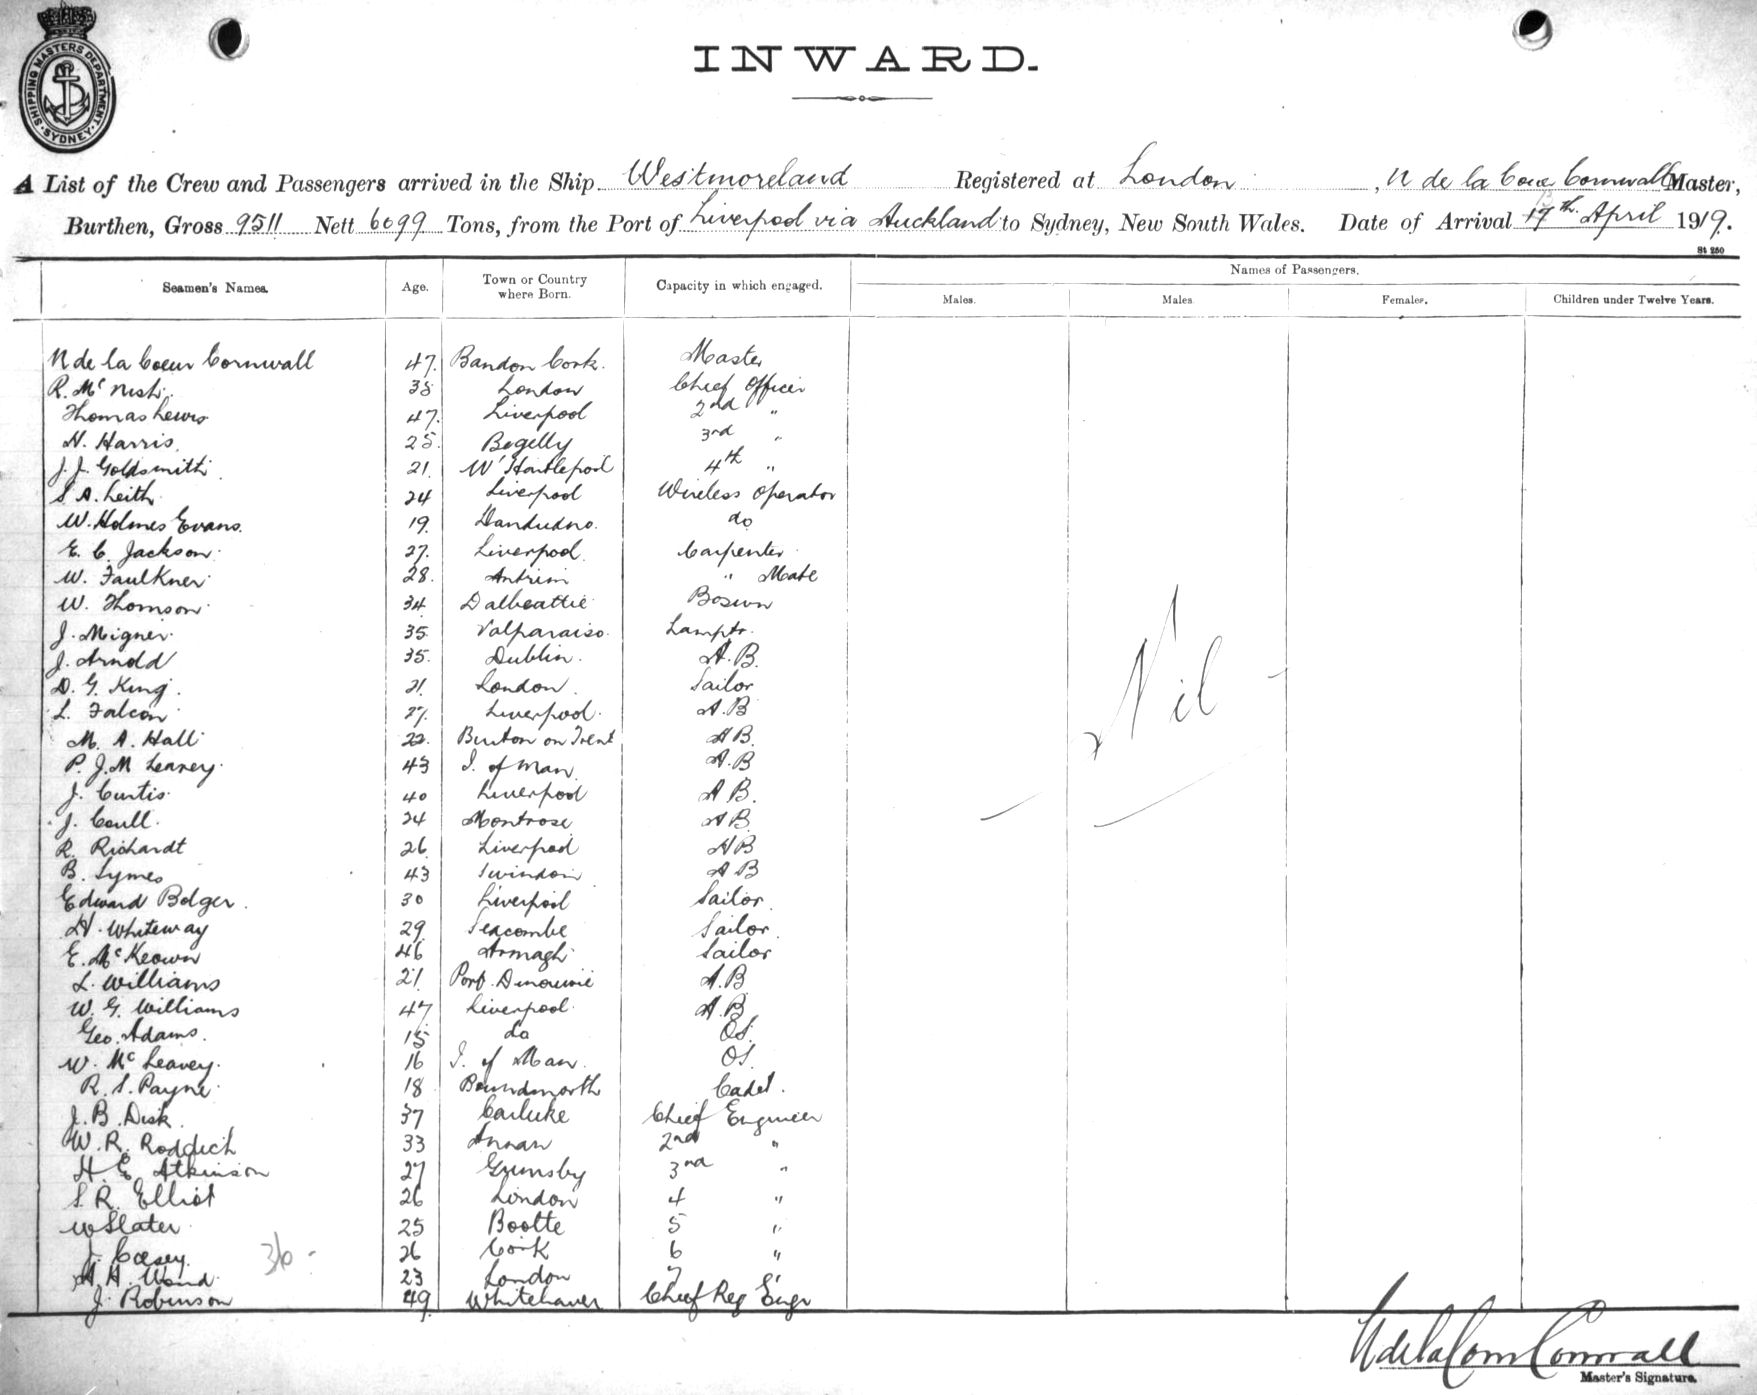 SHIPPING MASTERS DEPARTMENT.
SYDNEY
INWARD.
A List of the Crew and Passengers arrived in the Ship Westmoreland Registered at London, N de la Coeur Cornwall Master,
Burthen, Gross 9511 Nett 6099 Tons, from the Port of Liverpool via Auckland to Sydney, New South Wales. Date of Arrival 17th April 1919.
St 250
Seamen's Names. Age. Town or Country where Born. Capacity in which engaged. Names of Passengers.
Males. Males. Females. Children under Twelve Years.
N de la Coeur Cornwall 47. Bandon Cork. Master
R. Mc Nish. 38 London Chief Officer
Thomas Lewis 47. Liverpool 2nd "
N. Harris. 25. Begelly 3rd "
J. J. Goldsmith 21. W' Hartlepool 4th "
S A. Leith 24 Liverpool Wireless Operator
W. Holmes Evans. 19. Llandudno. do
E. C. Jackson 27. Liverpool Carpenter
W. Faulkner 28. Antrim " Mate
W. Thomson 34 Dalbeattie Bosun
J. Migner 35 Valparaiso. Lamptr.
J. Arnold 35. Dublin. A.B.
D. G. King. 21. London. Sailor
L. Falcon 27. Liverpool. A.B
M. A. Hall 22. Burton on Trent A B.
P. J. M 43 I. of Man. A.B
J. Curtis 40 Liverpool A B.
J. Coull. 24 Montrose A B.
R. Richardt 26 Liverpool A B
B. Symes 43 Swindon A B
Edward Bolger. 30 Liverpool Sailor.
H. Whiteway 29. Seacombe Sailor.
E. Mc Keown 46 Armagh Sailor
L. Williams 21. Port A.B
W. G. Williams 47 Liverpool. A.B.
Geo. Adams. 15 Do OS.
W. Mc Leavey. 16 I. of Man. OS.
R. S. Payne 18 Cadet.
J. B. Disk. 37 Carluke Chief Engineer
W. R. Roddick 33 Annan 2nd "
H. E Atkinson 27 Grimsby 3rd "
S. R. Elliot 26 London 4 "
W Slater 25 Bootle 5 "
J. Casey. 26 Cork 6 "
A. H. Wand 23 London 7 "
J. Robinson 49. Whitehaven Chief Reg Engr
Nil
36
N de la Coeur Cornwall
Master's Signature.